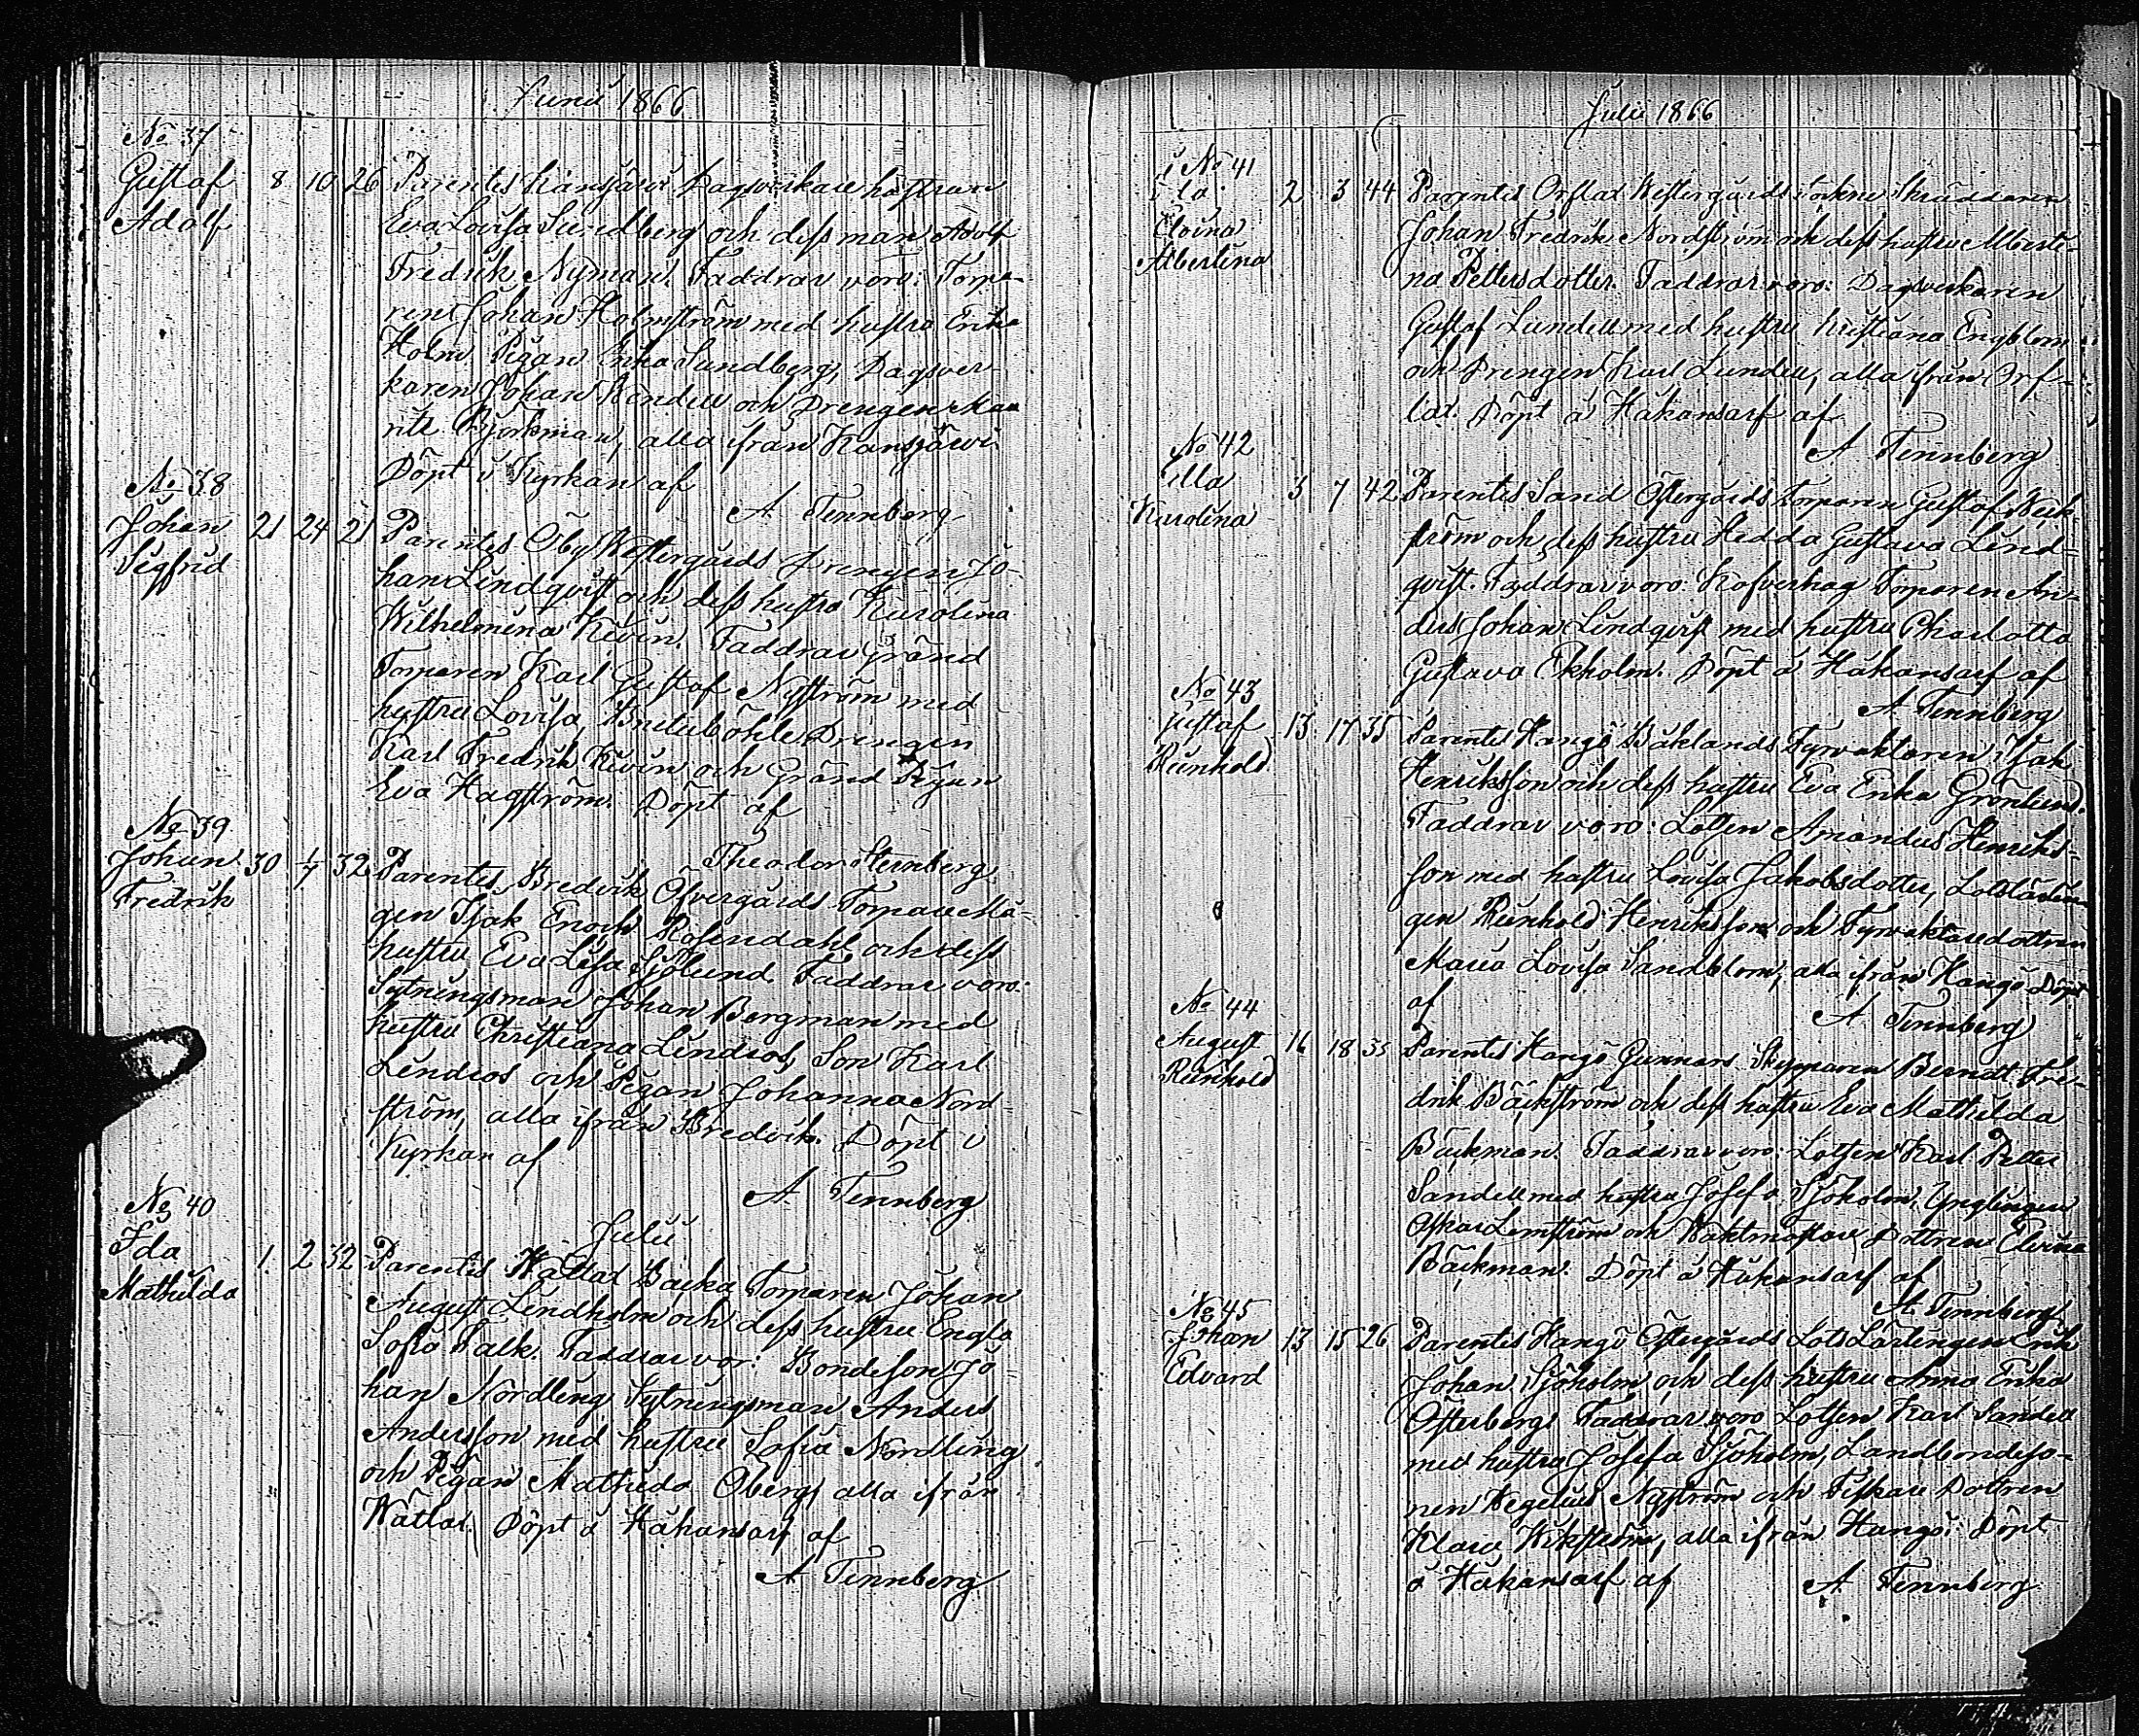 Junii 1866
No 37
Gustaf 8 10 26 Parentes Hansjärvi Dagsverkare hustrun
Adolf Eva Lovisa Sundberg och dess man Adolf
Fredrik Nyman. Faddrar voro: Torpa-
ren Johan Holmström med hustru Erika
Holm Pigan Erika Sundberg, Dagsver-
karen Johan Wendell och Drengen
Björkman, alla ifrån Hansjärvi
Döpt i Kyrkan af
A Tennberg
No 38
Johan 21 24 21 Parentes Öby Westergårds Drengen Jo-
Sigfrid han Lindqvist och dess hustru Karolina
Wilhelmina Kevin. Faddrar Gränd
Torparen Karl Gustaf Nyström med
hustru Lovisa, Drengen
Karl Fredrik Kevin och Gränd Pigan
Eva Hagström. Döpt af
Theodor Stennberg
No 39
Johan 30 1/7 32 Parentes Bredvik Öfvergårds Torpare Må-
Fredrik gen Isak Enoch Rosendahl och dess
hustru Eva Lisa Sjölund. Faddrar voro:
Sytningsman Johan Bergman med
hustru Christiana Lindroos, Son Karl
Lindroos och Pigan Johanna Nord-
ström, alla ifrån Bredvik. Döpt i
Kyrkan af
A Tennberg
Julii
No 40
Ida 1 2 32 Parentes Wättlax Backa Torparen Johan
Mathilda August Lindholm och dess hustru Engla
Sofia Falk. Faddrar vor: Bondeson Jo-
han Nordling Sytningsman Anders
Andersson med hustru Sofia Nordling
och Pigan Mathilda Öberg, alla ifrån
Wättlax. Döpt å Håkansarf af
A Tennberg
Julii 1866
No 41
Ida 2 3 44 Parentes Orslax Westergårds Skräddaren
Elvina Johan Fredrik Nordström och dess hustru Alberti-
Albertina na Pettersdotter. Faddrar voro: Dagsverkaren
Gustaf Lundell med hustru Kristiana Engblom
och Drengen Karl Lundell, alla ifrån Ors-
lax. Döpt å Håkansarf af
A Tennberg
No 42
Ulla 3 7 42 Parentes Sand Östergårds Torparen Gustaf Weck-
Karolina ström och dess hustru Hedda Gustava Lind-
qvist. Faddrar voro: Kofverhag Torparen An-
ders Johan Lindqvist med hustru Charlotta
Gustava Ekholm. Döpt å Håkansarf af
A Tennberg
No 43
Gustaf 13 17 35 Parentes Hangö Båklands Fyrvaktaren Isak
Reinhold Henriksson och dess hustru Eva Erika Grönlund.
Faddrar voro: Lotsen Amandus Henriks-
son med hustru Lovisa Jakobsdotter, Lotslärlin-
gen Reinhold Henriksson och Fyrvaktaredottren
Maria Lovisa Sandblom, alla ifrån Hangö Döpt
af
A Tennberg
No 44
August 16 18 35 Parentes Hangö Gunnars Skepparen Berndt Fre-
Reinhold drik Bäckström och dess hustru Eva Mathilda
Bäckman. Faddrar voro: Lotsen Karl Petter
Sandell med hustru Josefa Sjöholm, Ynglingen
Oskar Lemström och Waktmästare Dottren Elvina
Bäckman. Döpt å Håkansarf af
A Tennberg
No 45
Johan 13 15 26 Parentes Hangö Östergårds Lots Lärlingen Erik
Edvard Johan Sjöholm och dess hustru Anna Erika
Österberg. Faddrar voro Lotsen Karl Sandell
med hustru Josefa Sjöholm, Landbondeso-
nen Nyström och Fiskare Dottren
Klara Wikström, alla ifrån Hangö. Döpt
å Håkansarf af A Tennberg